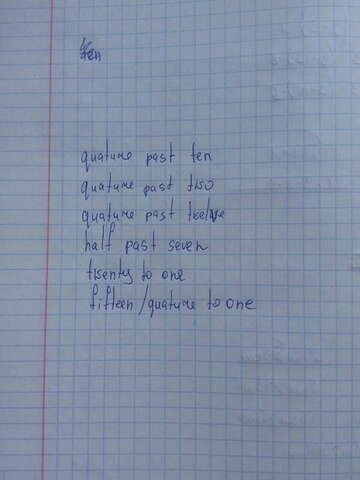 ten
quature past ten
quature past two
quature past twelve
half past seven
twenty to one
fifteen / quature to one